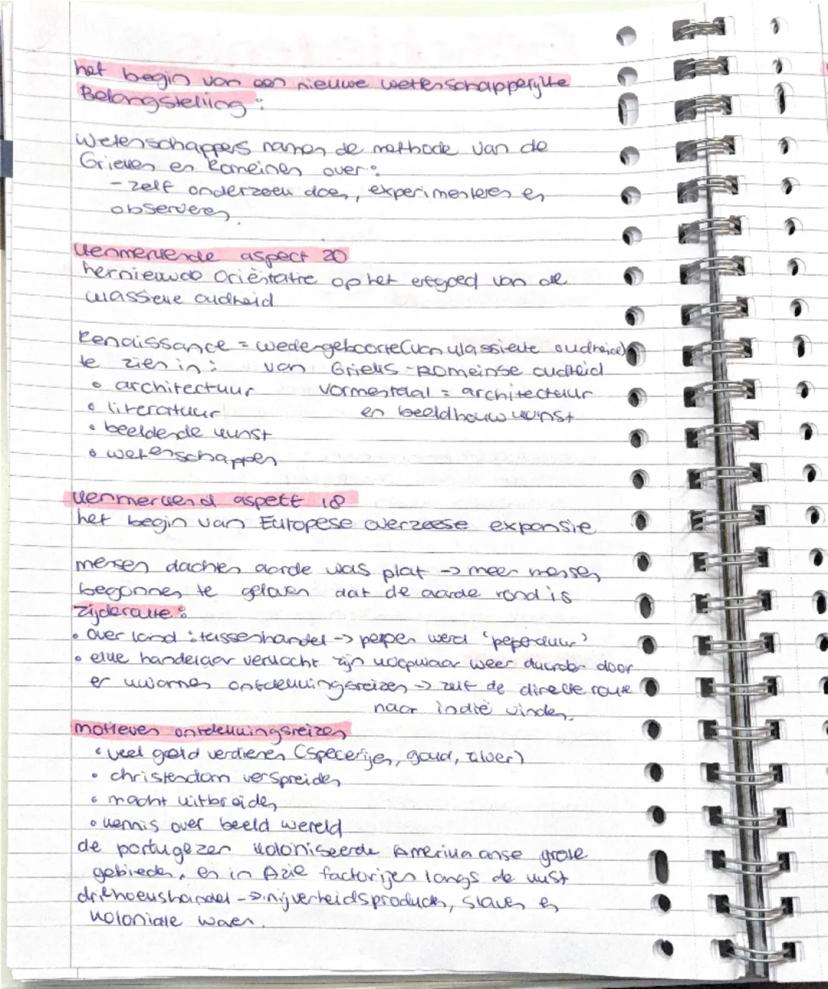 het begin van een nieuwe wetenschappelijke
Belangstelling :
wetenschappers namen de methode van de
Grieken en Romeinen over :
- zelf onderzoek doen, experimenteren en
observeren.
kenmerkende aspect 20
hernieuwde Oriëntatie op het erfgoed van de
klassieke oudheid
Renaissance = wedergeboorte (van klassieke oudheid)
te zien in : van Grieks-Romeinse oudheid
• architectuur vormentaal = architectuur
• literatuur en beeldhouwkunst
• beeldende kunst
• wetenschappen
kenmerkend aspect 18
het begin van Europese overzeese expansie
mensen dachten aarde was plat -> meer mensen
begonnen te geloven dat de aarde rond is
zijderoute :
• over land : tussenhandel -> peper werd 'peperduur'
• elke handelaar verkocht zijn koopwaar weer duurder door
er kwamen ontdekkingsreizen -> zelf de directe route
naar indië vinden.
motieven ontdekkingsreizen
• veel geld verdienen (specerijen, goud, zilver)
• christendom verspreiden
• macht uitbreiden
• kennis over beeld wereld
de portugezen koloniseerde Amerikaanse grote
gebieden, en in Azië factorijen langs de kust
driehoekshandel -> nijverheidsproducten, slaven en
koloniale waren.